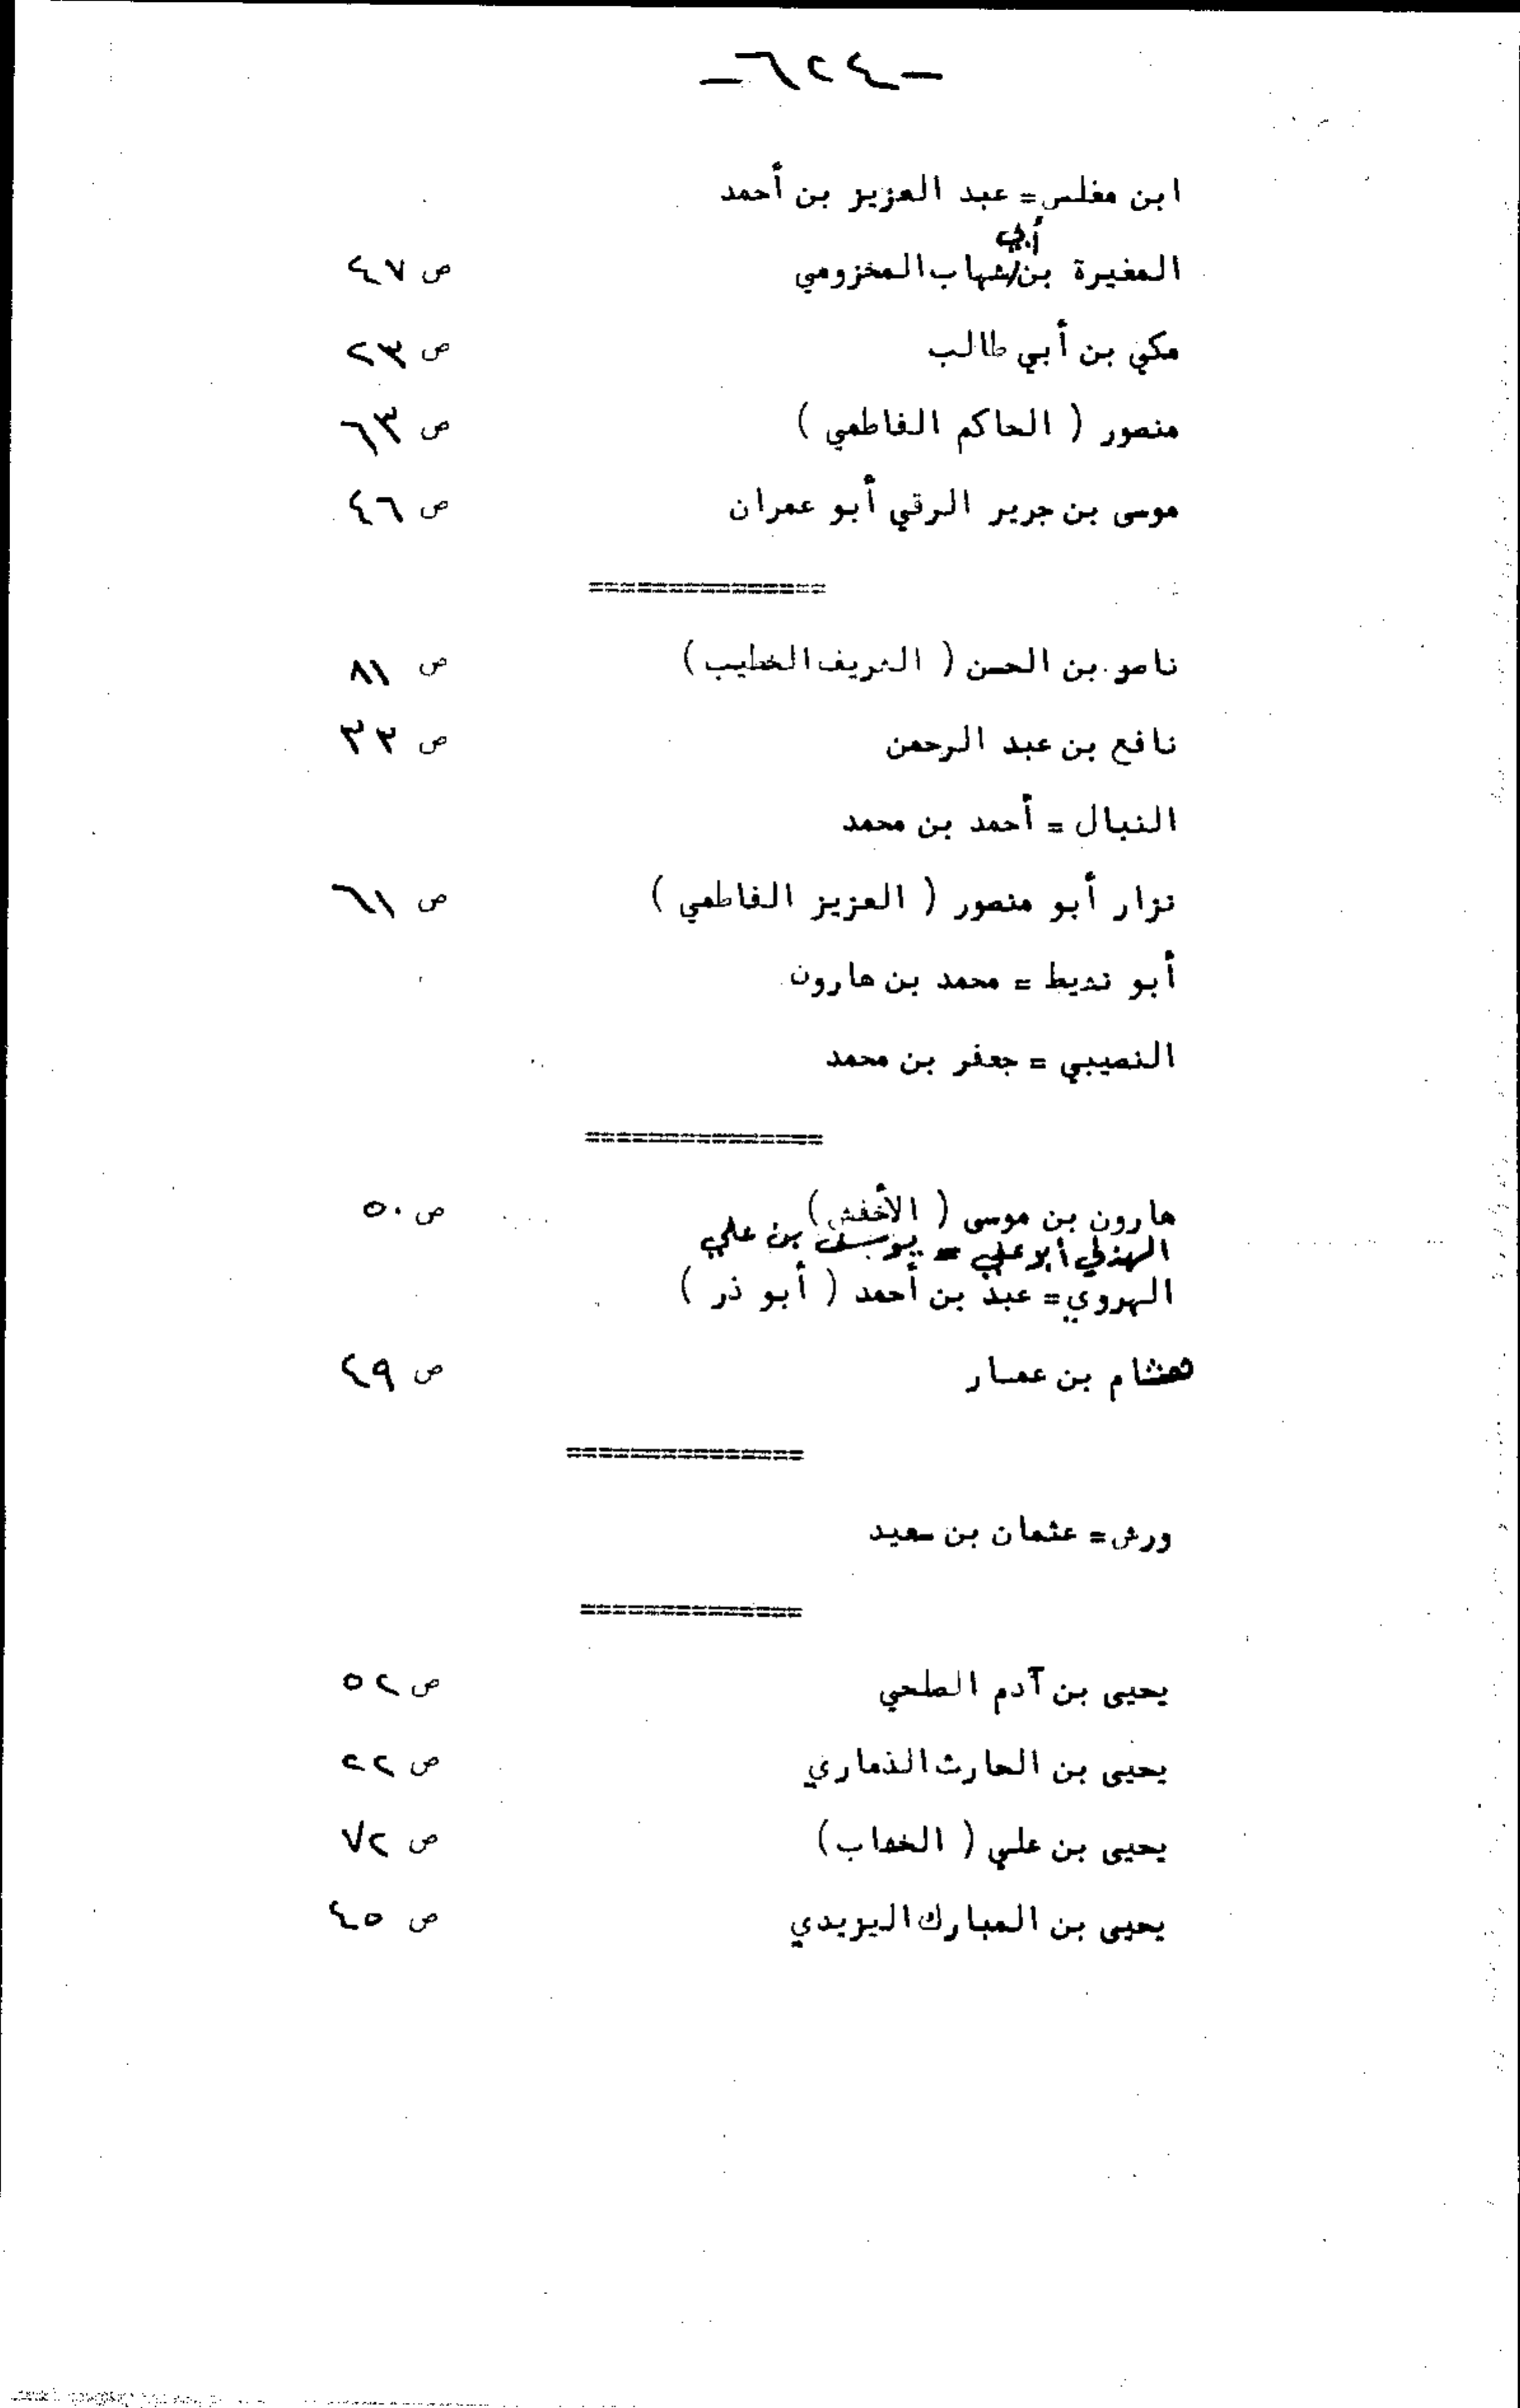 -٦٢٤-
ابن مغلس = عبد العزيز بن أحمد
المغيرة بن/أبي شهاب المخزومي ص ٤٧
مكي بن أبي طالب ص ٢٣
منصور ( الحاكم الفاطمي ) ص ٦٣
موسى بن جرير الرقي أبو عمران ص ٤٦
===============
ناصر بن الحسن ( الشريف الخطيب ) ص ٨١
نافع بن عبد الرحمن ص ٣٣
النبال = أحمد بن محمد
نزار أبو منصور ( العزيز الفاطمي ) ص ٦١
أبو نشيط = محمد بن هارون
النصيبي = جعفر بن محمد
===============
هارون بن موسى ( الأخفش ) ص ٥٠
الهذلي أبو علي = يوسف بن علي
الهروي = عبد بن أحمد ( أبو ذر )
هشام بن عمار ص ٤٩
===============
ورش = عثمان بن سعيد
===============
يحيى بن آدم الطلحي ص ٥٢
يحيى بن الحارث الذماري ص ٢٢
يحيى بن علي ( الخشاب ) ص ٧٢
يحيى بن المبارك اليزيدي ص ٤٥